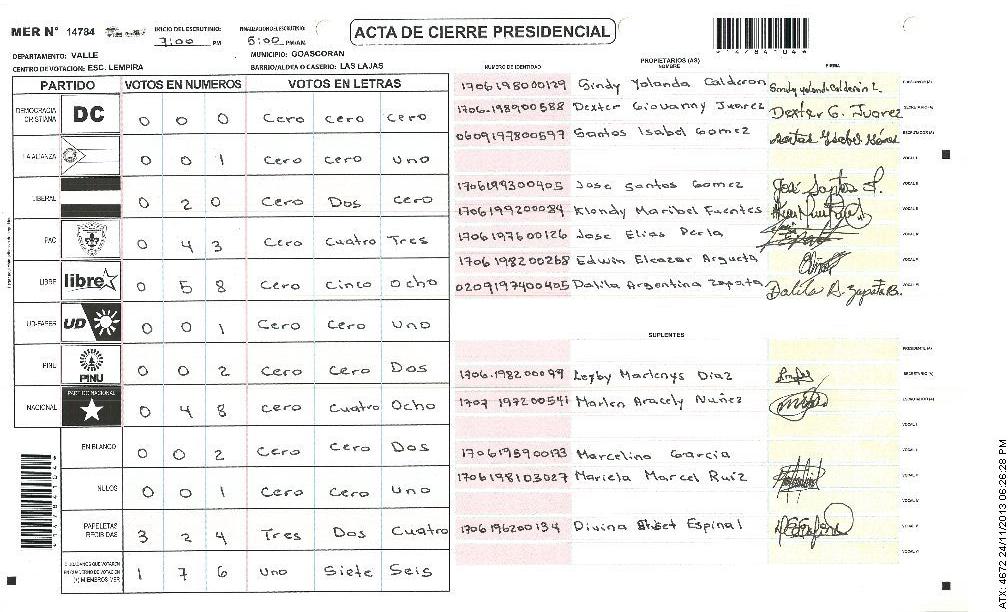 MER N° 14784 INICIO DEL ESCRUTINIO: 7:00 PM FINALIZACION ESCRUTINIO: 5:00 PM/AM
ACTA DE CIERRE PRESIDENCIAL
DEPARTAMENTO: VALLE MUNICIPIO: GOASCORAN
CENTRO DE VOTACION: ESC. LEMPIRA BARRIO/ALDEA O CASERIO: LAS LAJAS
PARTIDO VOTOS EN NUMEROS VOTOS EN LETRAS
DEMOCRACIA CRISTIANA DC 0 0 0 Cero cero cero
LA ALIANZA 0 0 1 Cero Cero Uno
LIBERAL 0 2 0 Cero Dos Cero
PAC 0 4 3 Cero Cuatro Tres
LIBRE libre 0 5 8 Cero Cinco Ocho
UD-FAPER UD 0 0 1 Cero Cero Uno
PINU PINU 0 0 2 Cero Cero Dos
NACIONAL PARTIDO NACIONAL 0 4 8 Cero Cuatro Ocho
EN BLANCO 0 0 2 Cero Cero Dos
NULOS 0 0 1 Cero Cero Uno
PAPELETAS RECIBIDAS 3 2 4 Tres Dos Cuatro
CIUDADANOS QUE VOTARON EN CUADERNO DE VOTACION (+) MIEMBROS MER 1 7 6 Uno Siete Seis
PROPIETARIOS (AS)
NUMERO DE IDENTIDAD NOMBRE FIRMA
1706198000129 Sindy Yolanda Calderon
1706-198900588 Dexter Giovanny Juarez Dexter G. Juarez
0609197800597 Santos Isabel Gomez Santos Ysabel Gómez
1706199300405 Jose Santos Gomez José Santos
1706199200084 Klendy Maribel Fuentes
1706197600126 Jose Elias Perla
1706198200268 Edwin Eleazar Argueta
0209197400405 Dalila Argentina Zapata Dalila A. Zapata B.
SUPLENTES
1706-198200099 Leyby Marlenys Diaz
1707 197200541 Marlen Aracely Nuñez
Marcelino Garcia
1706198103027 Mariela Marcel Ruiz
1706196200134 Divina Espinal
ATX: 4672 24/11/2013 06:26:28 PM